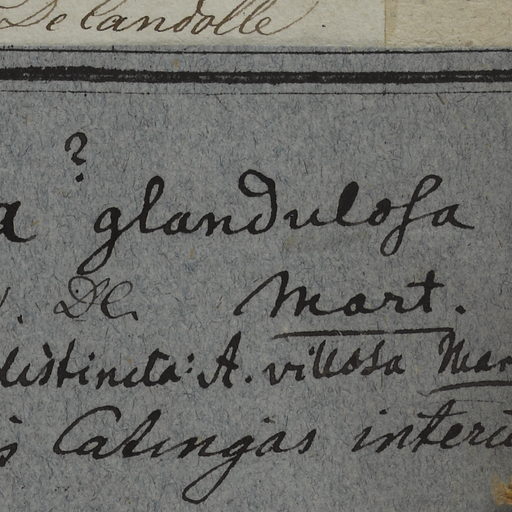 De Candolle
?
a glandulosa
. DC. Mart.
distincta: A. villosa Mar
s Catingas interi